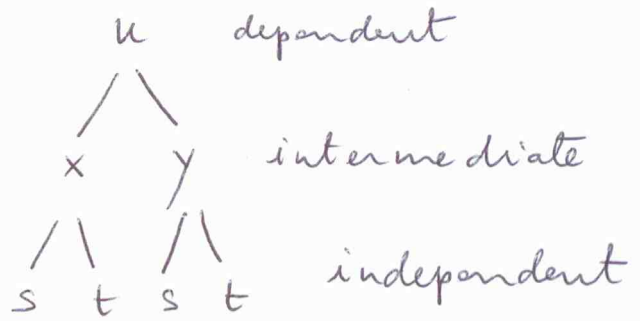 u dependent
x y intermediate
s t s t independent